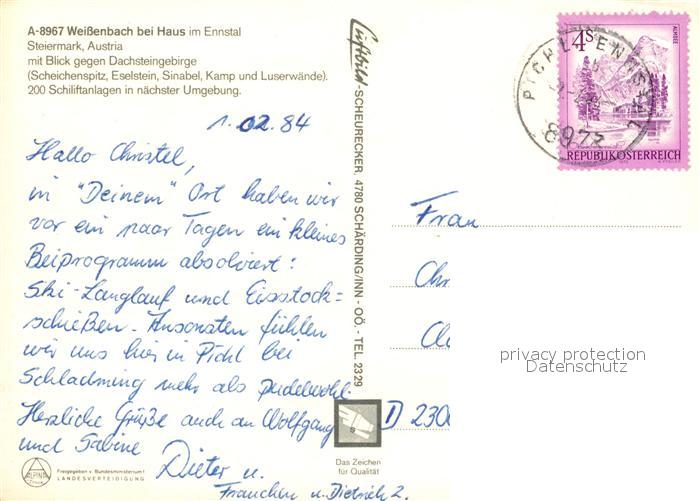 A-8967 Weißenbach bei Haus im Ennstal
Steiermark, Austria
mit Blick gegen Dachsteingebirge
(Scheichenspitz, Eselstein, Sinabel, Kamp und Luserwände).
200 Schiliftanlagen in nächster Umgebung.
1.02.84
Hallo Christel,
in "Deinem" Ort haben wir
vor ein paar Tagen ein kleines
Beiprogramm absolviert:
Ski-Langlauf und Eisstock=
schießen. Ansonsten fühlen
wir uns hier in Pichl bei
Schladming mehr als pudelwohl.
Herzliche Grüße auch an Wolfgang
und Sabine Dieter u.
Franchen u. Dietrich 2.
ALPINA
Freigegeben v. Bundesministerium f.
LANDESVERTEIDIGUNG
Luftbild-SCHEURECKER, 4780 SCHÄRDING/INN - OÖ. - TEL. 23 29
Das Zeichen
für Qualität
4S
ALMSEE
REPUBLIK ÖSTERREICH
PICHL ENNSTAL
8973
Frau
Chr
D 2300
privacy protection
Datenschutz